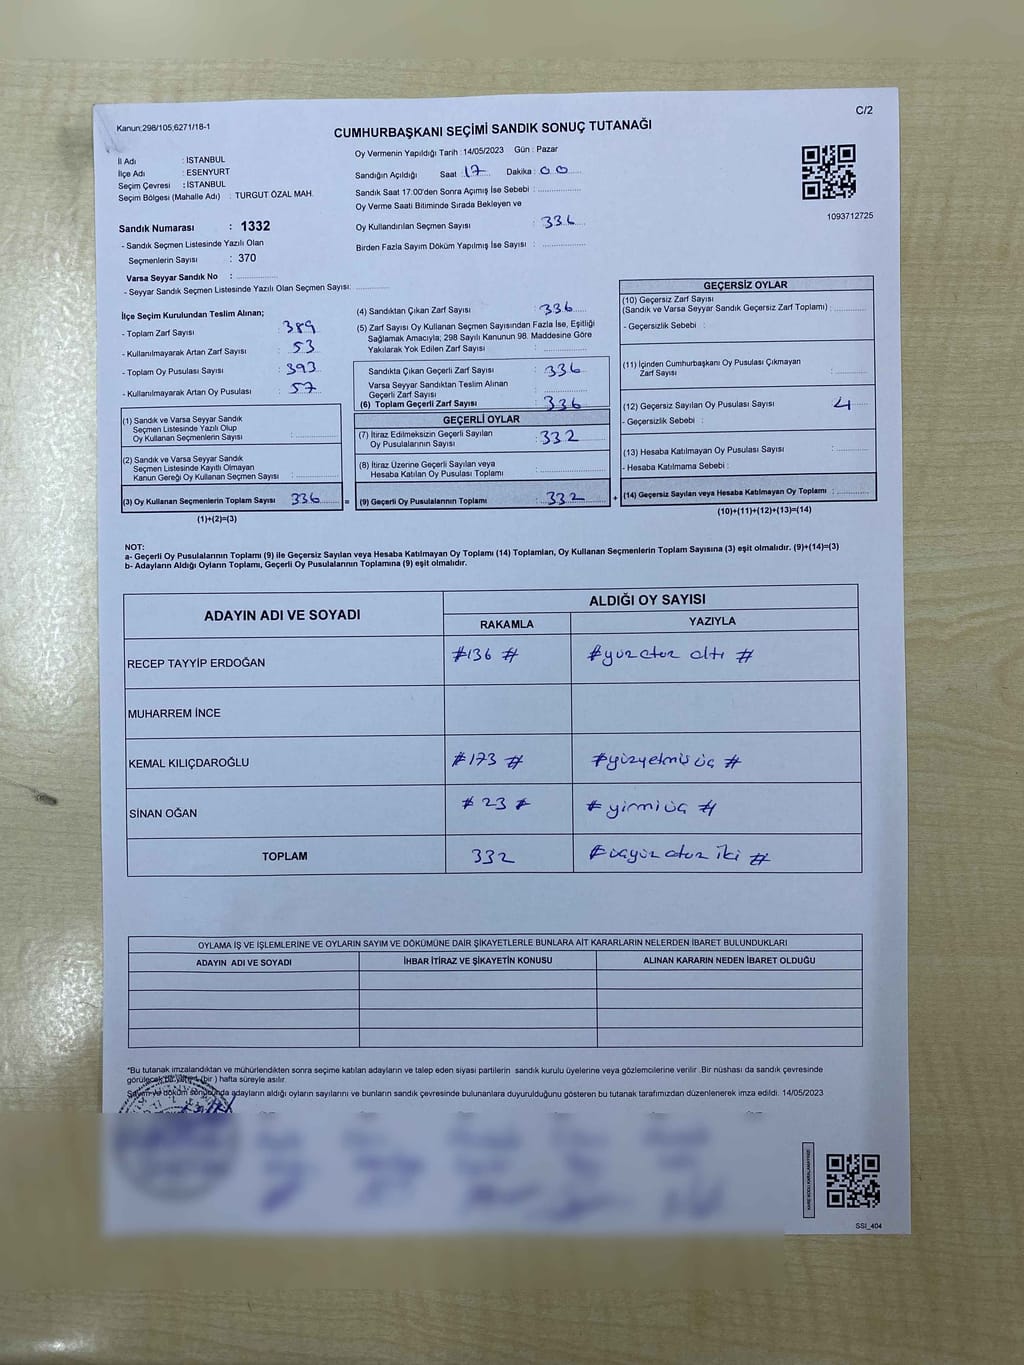 Kanun;298/105,6271/18-1
C/2
CUMHURBAŞKANI SEÇİMİ SANDIK SONUÇ TUTANAĞI
İl Adı : İSTANBUL
İlçe Adı : ESENYURT
Seçim Çevresi : İSTANBUL
Seçim Bölgesi (Mahalle Adı) : TURGUT ÖZAL MAH.
Oy Vermenin Yapıldığı Tarih : 14/05/2023 Gün : Pazar
Sandığın Açıldığı Saat : 17 Dakika : 00
Sandık Saat 17.00'den Sonra Açımış İse Sebebi :
Oy Verme Saati Bitiminde Sırada Bekleyen ve
Oy Kullandırılan Seçmen Sayısı : 336
Birden Fazla Sayım Döküm Yapılmış İse Sayısı :
1093712725
Sandık Numarası : 1332
- Sandık Seçmen Listesinde Yazılı Olan
Seçmenlerin Sayısı : 370
Varsa Seyyar Sandık No :
- Seyyar Sandık Seçmen Listesinde Yazılı Olan Seçmen Sayısı:
İlçe Seçim Kurulundan Teslim Alınan;
- Toplam Zarf Sayısı : 389
- Kullanılmayarak Artan Zarf Sayısı : 53
- Toplam Oy Pusulası Sayısı : 393
- Kullanılmayarak Artan Oy Pusulası : 57
(1) Sandık ve Varsa Seyyar Sandık
Seçmen Listesinde Yazılı Olup
Oy Kullanan Seçmenlerin Sayısı :
(2) Sandık ve Varsa Seyyar Sandık
Seçmen Listesinde Kayıtlı Olmayan
Kanun Gereği Oy Kullanan Seçmen Sayısı :
(3) Oy Kullanan Seçmenlerin Toplam Sayısı 336 =
(1)+(2)=(3)
(4) Sandıktan Çıkan Zarf Sayısı : 336
(5) Zarf Sayısı Oy Kullanan Seçmen Sayısından Fazla İse, Eşitliği
Sağlamak Amacıyla; 298 Sayılı Kanunun 98. Maddesine Göre
Yakılarak Yok Edilen Zarf Sayısı :
Sandıkta Çıkan Geçerli Zarf Sayısı : 336
Varsa Seyyar Sandıktan Teslim Alınan
Geçerli Zarf Sayısı :
(6) Toplam Geçerli Zarf Sayısı : 336
GEÇERLİ OYLAR
(7) İtiraz Edilmeksizin Geçerli Sayılan
Oy Pusulalarının Sayısı : 332
(8) İtiraz Üzerine Geçerli Sayılan veya
Hesaba Katılan Oy Pusulası Toplamı :
(9) Geçerli Oy Pusulalarının Toplamı : 332 +
GEÇERSİZ OYLAR
(10) Geçersiz Zarf Sayısı
(Sandık ve Varsa Seyyar Sandık Geçersiz Zarf Toplamı) :
- Geçersizlik Sebebi :
(11) İçinden Cumhurbaşkanı Oy Pusulası Çıkmayan
Zarf Sayısı :
(12) Geçersiz Sayılan Oy Pusulası Sayısı : 4
- Geçersizlik Sebebi :
(13) Hesaba Katılmayan Oy Pusulası Sayısı :
- Hesaba Katılmama Sebebi :
(14) Geçersiz Sayılan veya Hesaba Katılmayan Oy Toplamı :
(10)+(11)+(12)+(13)=(14)
NOT:
a- Geçerli Oy Pusulalarının Toplamı (9) ile Geçersiz Sayılan veya Hesaba Katılmayan Oy Toplamı (14) Toplamları, Oy Kullanan Seçmenlerin Toplam Sayısına (3) eşit olmalıdır. (9)+(14)=(3)
b- Adayların Aldığı Oyların Toplamı, Geçerli Oy Pusulalarının Toplamına (9) eşit olmalıdır.
ADAYIN ADI VE SOYADI
ALDIĞI OY SAYISI
RAKAMLA YAZIYLA
RECEP TAYYİP ERDOĞAN #136 # #yüz otuz altı #
MUHARREM İNCE
KEMAL KILIÇDAROĞLU #173 # #yüzyetmiş üç #
SİNAN OĞAN # 23 # # yirmi üç #
TOPLAM 332 # üçyüz otuz iki #
OYLAMA İŞ VE İŞLEMLERİNE VE OYLARIN SAYIM VE DÖKÜMÜNE DAİR ŞİKAYETLERLE BUNLARA AİT KARARLARIN NELERDEN İBARET BULUNDUKLARI
ADAYIN ADI VE SOYADI İHBAR İTİRAZ VE ŞİKAYETİN KONUSU ALINAN KARARIN NEDEN İBARET OLDUĞU
*Bu tutanak imzalandıktan ve mühürlendikten sonra seçime katılan adayların ve talep eden siyasi partilerin sandık kurulu üyelerine veya gözlemcilerine verilir .Bir nüshası da sandık çevresinde
görülecek bir yere 1 (bir ) hafta süreyle asılır.
Sayım ve döküm sonucunda adayların aldığı oyların sayılarını ve bunların sandık çevresinde bulunanlara duyurulduğunu gösteren bu tutanak tarafımızdan düzenlenerek imza edildi. 14/05/2023
KARE KODU KARALAMAYINIZ!
SSI_404